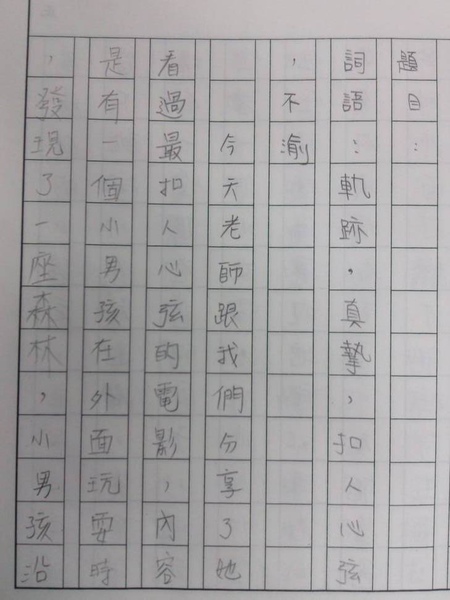 題目：
詞語：軌跡，真摯，扣人心弦
，不渝
今天老師跟我們分享了她
看過最扣人心弦的電影，內容
是有一個小男孩在外面玩耍時
，發現了一座森林，小男孩沿